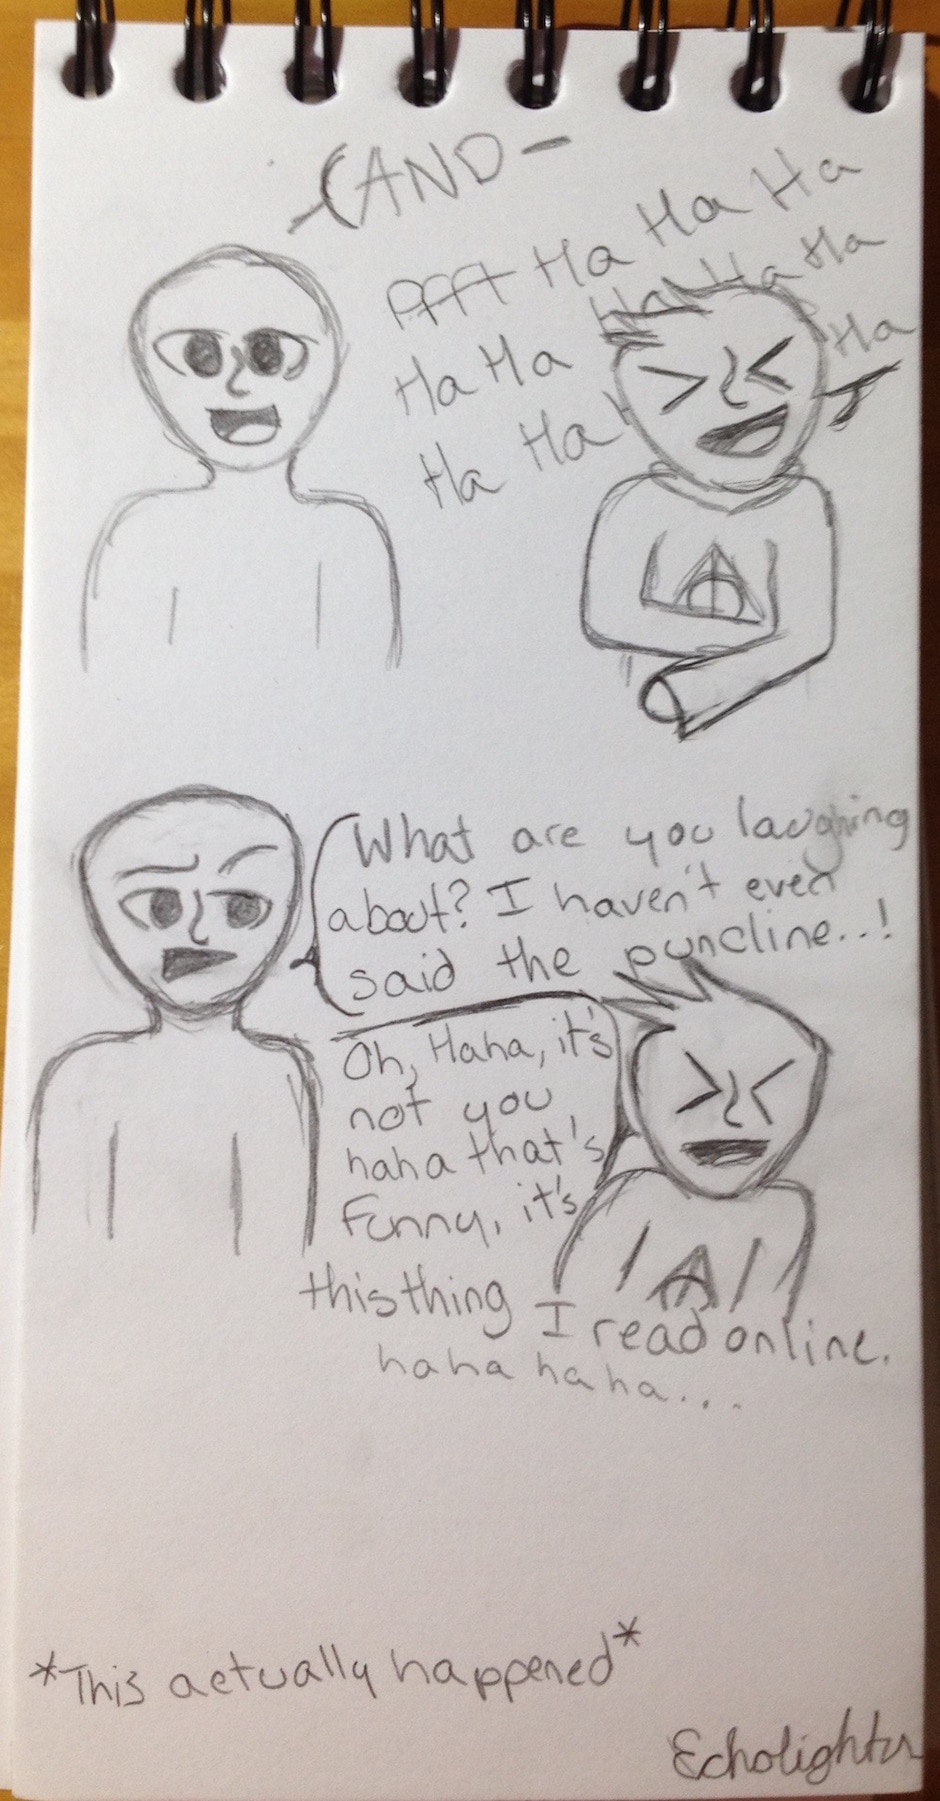 AND-
Pfft Ha Ha Ha
Ha Ha Ha Ha Ha
Ha Ha Ha
What are you laughing
about? I haven't even
said the puncline..!
Oh, Haha, it's
not you
haha that's
Funny, it's
this thing I read online.
haha haha...
*This actually happened*